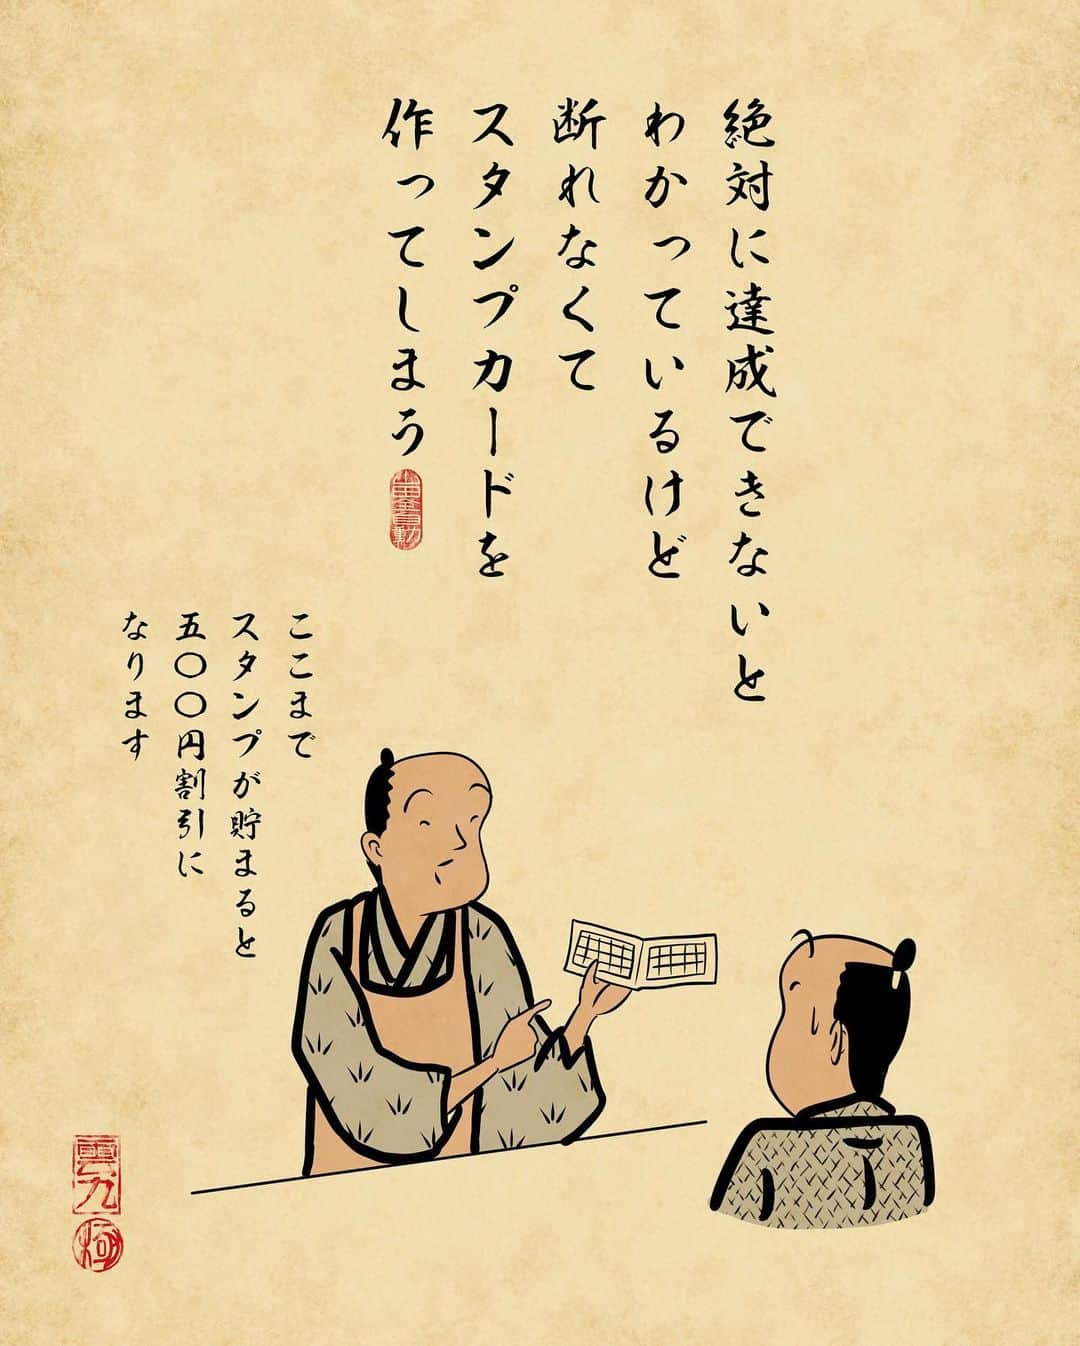 絶対に達成できないと
わかっているけど
断れなくて
スタンプカードを
作ってしまう
ここまで
スタンプが貯まると
五〇〇円割引に
なります